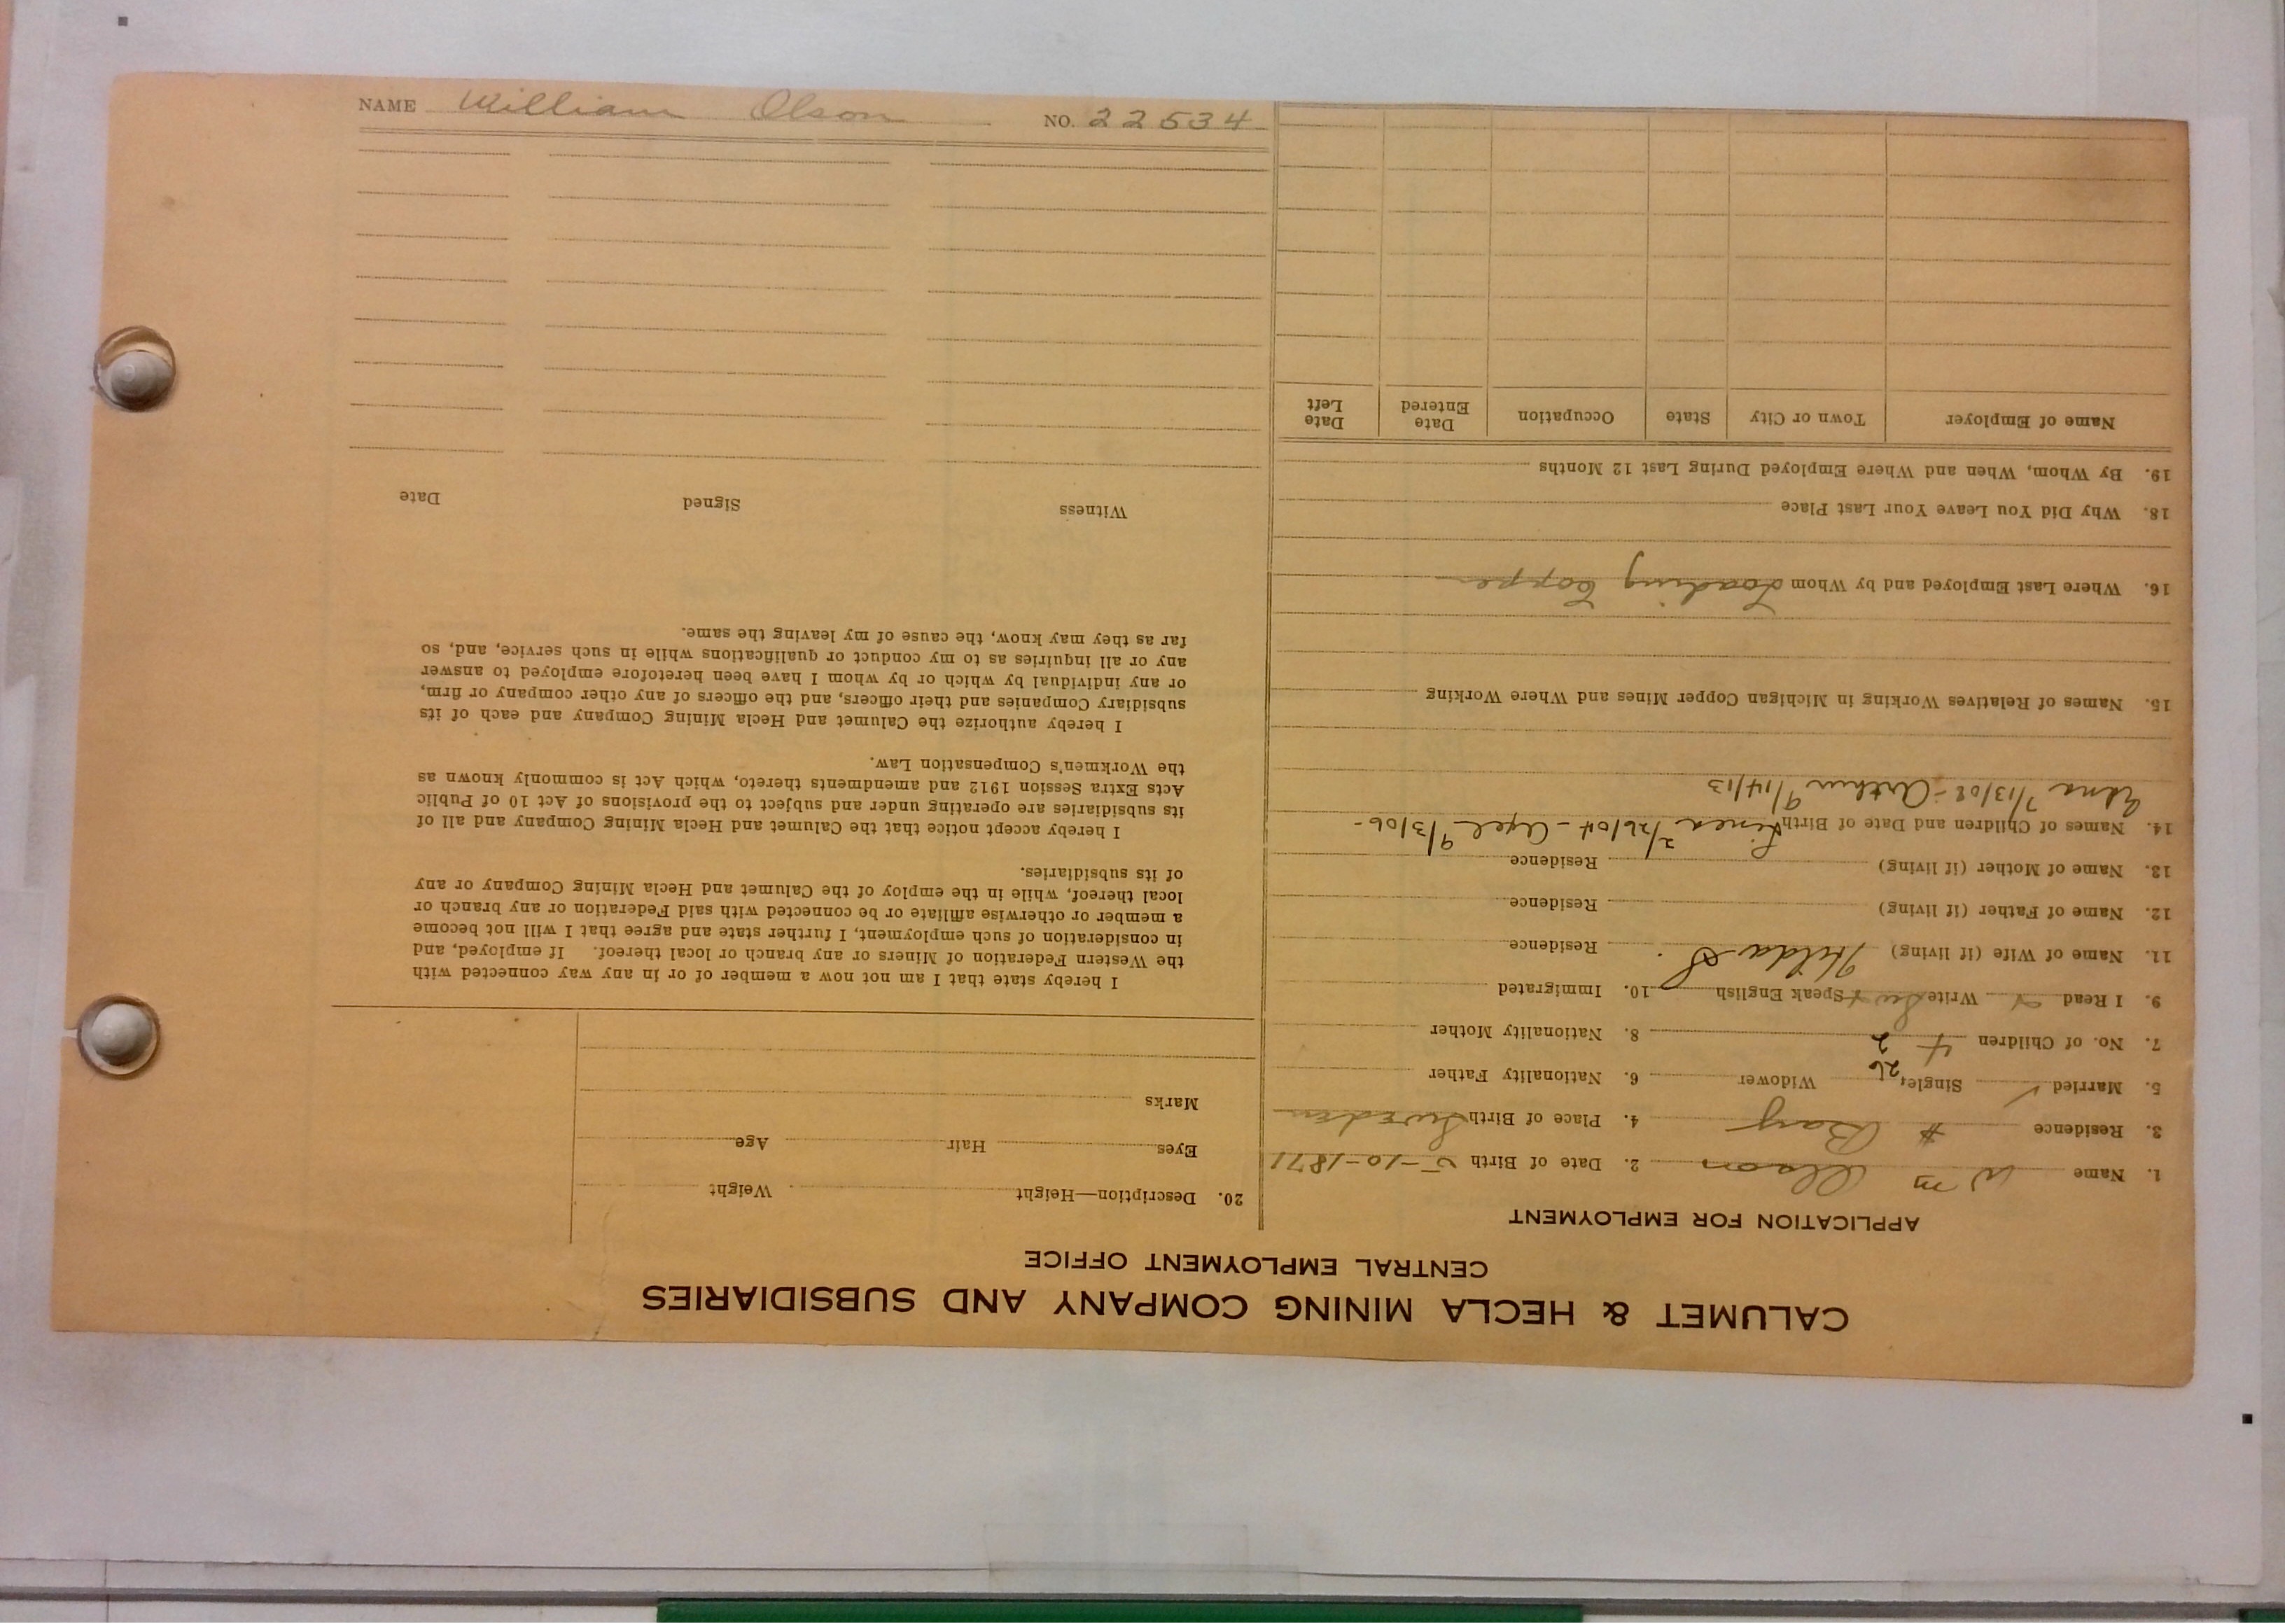 NAME William Olson NO. 22534
CALUMET & HECLA MINING COMPANY AND SUBSIDIARIES
CENTRAL EMPLOYMENT OFFICE
APPLICATION FOR EMPLOYMENT
1. Name Wm Olson 2. Date of Birth 5-10-1871
3. Residence # Bay 4. Place of Birth Sweden
5. Married ✓ Single Widower 6. Nationality Father
26
7. No. of Children 4 2 8. Nationality Mother
9. I Read Write Speak English 10. Immigrated
11. Name of Wife (if living) Hilda S Residence
12. Name of Father (if living) Residence
13. Name of Mother (if living) Residence
14. Names of Children and Date of Birth Linea 2/26/04 - Axel 9/3/06 -
Edna 7/13/08 - Arthur 9/14/13
15. Names of Relatives Working in Michigan Copper Mines and Where Working
16. Where Last Employed and by Whom Loading Copper
18. Why Did You Leave Your Last Place
19. By Whom, When and Where Employed During Last 12 Months
Name of Employer Town or City State Occupation Date Entered Date Left
20. Description—Height Weight
Eyes Hair Age
Marks
I hereby state that I am not now a member of or in any way connected with
the Western Federation of Miners or any branch or local thereof. If employed, and
in consideration of such employment, I further state and agree that I will not become
a member or otherwise affiliate or be connected with said Federation or any branch or
local thereof, while in the employ of the Calumet and Hecla Mining Company or any
of its subsidiaries.
I hereby accept notice that the Calumet and Hecla Mining Company and all of
its subsidiaries are operating under and subject to the provisions of Act 10 of Public
Acts Extra Session 1912 and amendments thereto, which Act is commonly known as
the Workmen's Compensation Law.
I hereby authorize the Calumet and Hecla Mining Company and each of its
subsidiary Companies and their officers, and the officers of any other company or firm,
or any individual by which or by whom I have been heretofore employed to answer
any or all inquiries as to my conduct or qualifications while in such service, and, so
far as they may know, the cause of my leaving the same.
Witness Signed Date